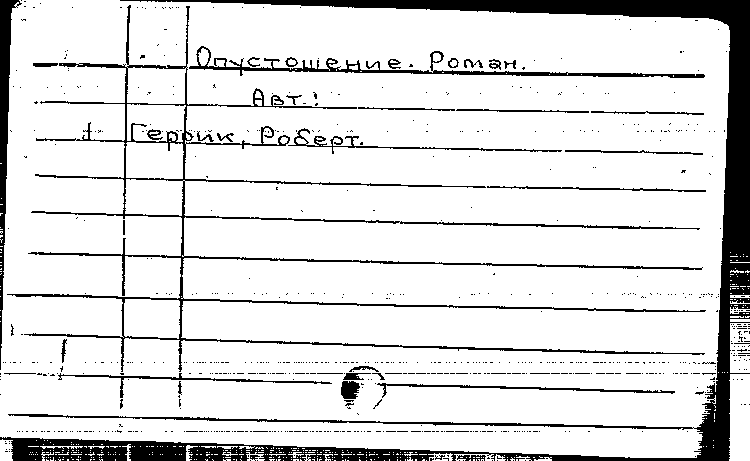 Опустошение. Роман.
Авт.:
+ Геррик, Роберт.